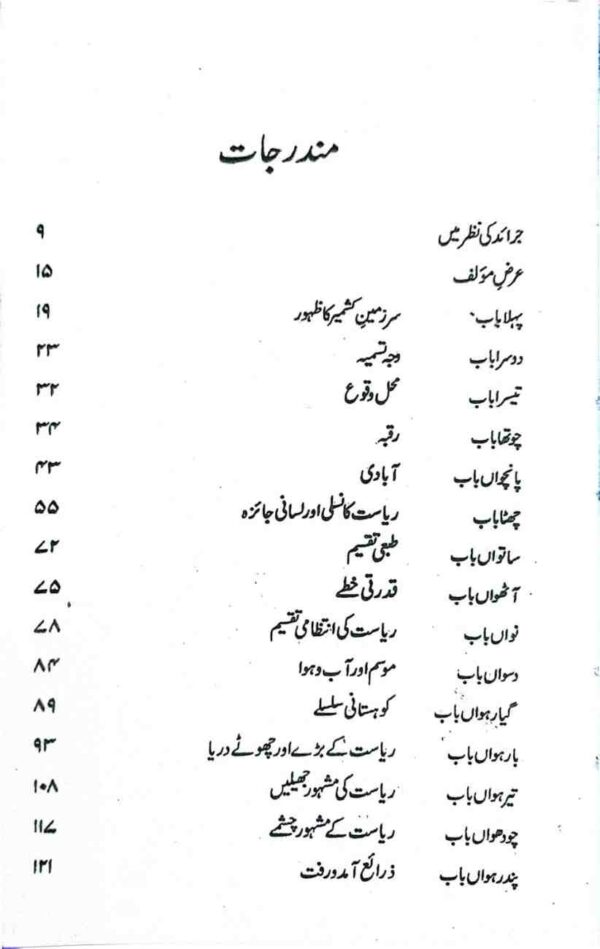 مندرجات
جرائد کی نظر میں ۹
عرضِ مؤلف ۱۵
پہلا باب سرزمینِ کشمیر کا ظہور ۱۹
دوسرا باب وجہ تسمیہ ۲۳
تیسرا باب محل وقوع ۳۲
چوتھا باب رقبہ ۳۴
پانچواں باب آبادی ۴۳
چھٹا باب ریاست کا نسلی اور لسانی جائزہ ۵۵
ساتواں باب طبعی تقسیم ۷۲
آٹھواں باب قدرتی خطے ۷۵
نواں باب ریاست کی انتظامی تقسیم ۷۸
دسواں باب موسم اور آب و ہوا ۸۴
گیارہواں باب کوہستانی سلسلے ۸۹
بارہواں باب ریاست کے بڑے اور چھوٹے دریا ۹۳
تیرہواں باب ریاست کی مشہور جھیلیں ۱۰۸
چودھواں باب ریاست کے مشہور چشمے ۱۱۷
پندرہواں باب ذرائع آمدورفت ۱۲۱